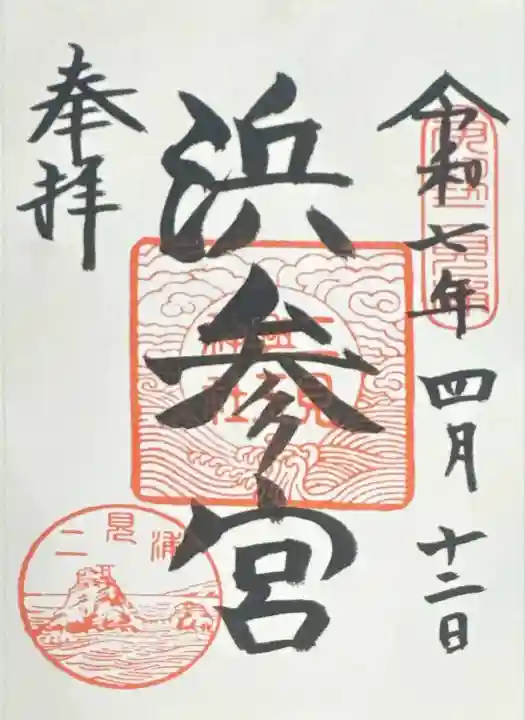 令和七年四月十二日
浜参宮
奉拝
二見興玉神社
二見浦